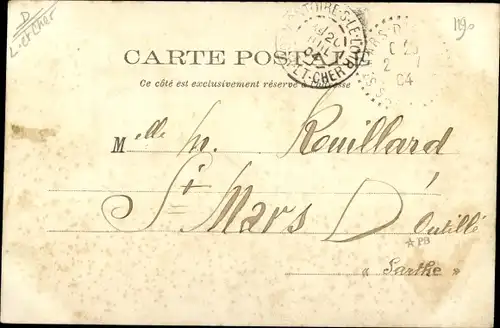 D
L. et Cher
1190
CARTE POSTALE
Ce côté est exclusivement réservé à l'adresse
MONTOIRE-S-LE-LOIR
20
JUIL
04
LOIR-ET-CHER
2
04
Melle M. Rouillard
St Mars D'Outillé
☆PB
« Sarthe »